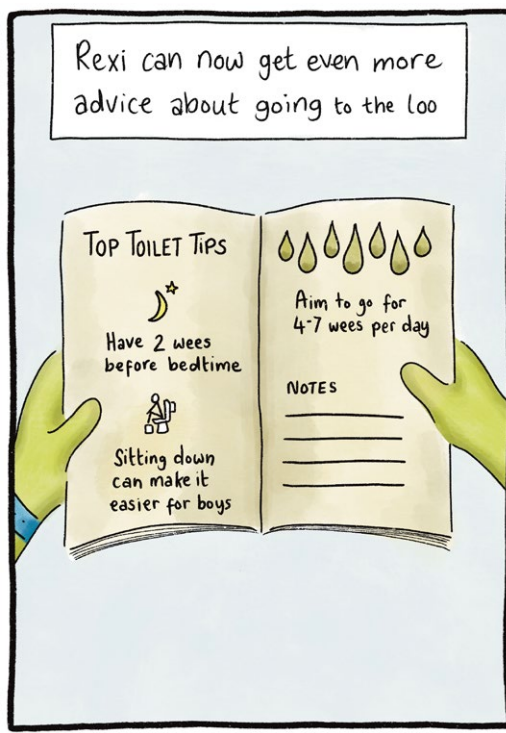 Rexi can now get even more
advice about going to the loo
TOP TOILET TIPS
Have 2 wees
before bedtime
Sitting down
can make it
easier for boys
Aim to go for
4-7 wees per day
NOTES